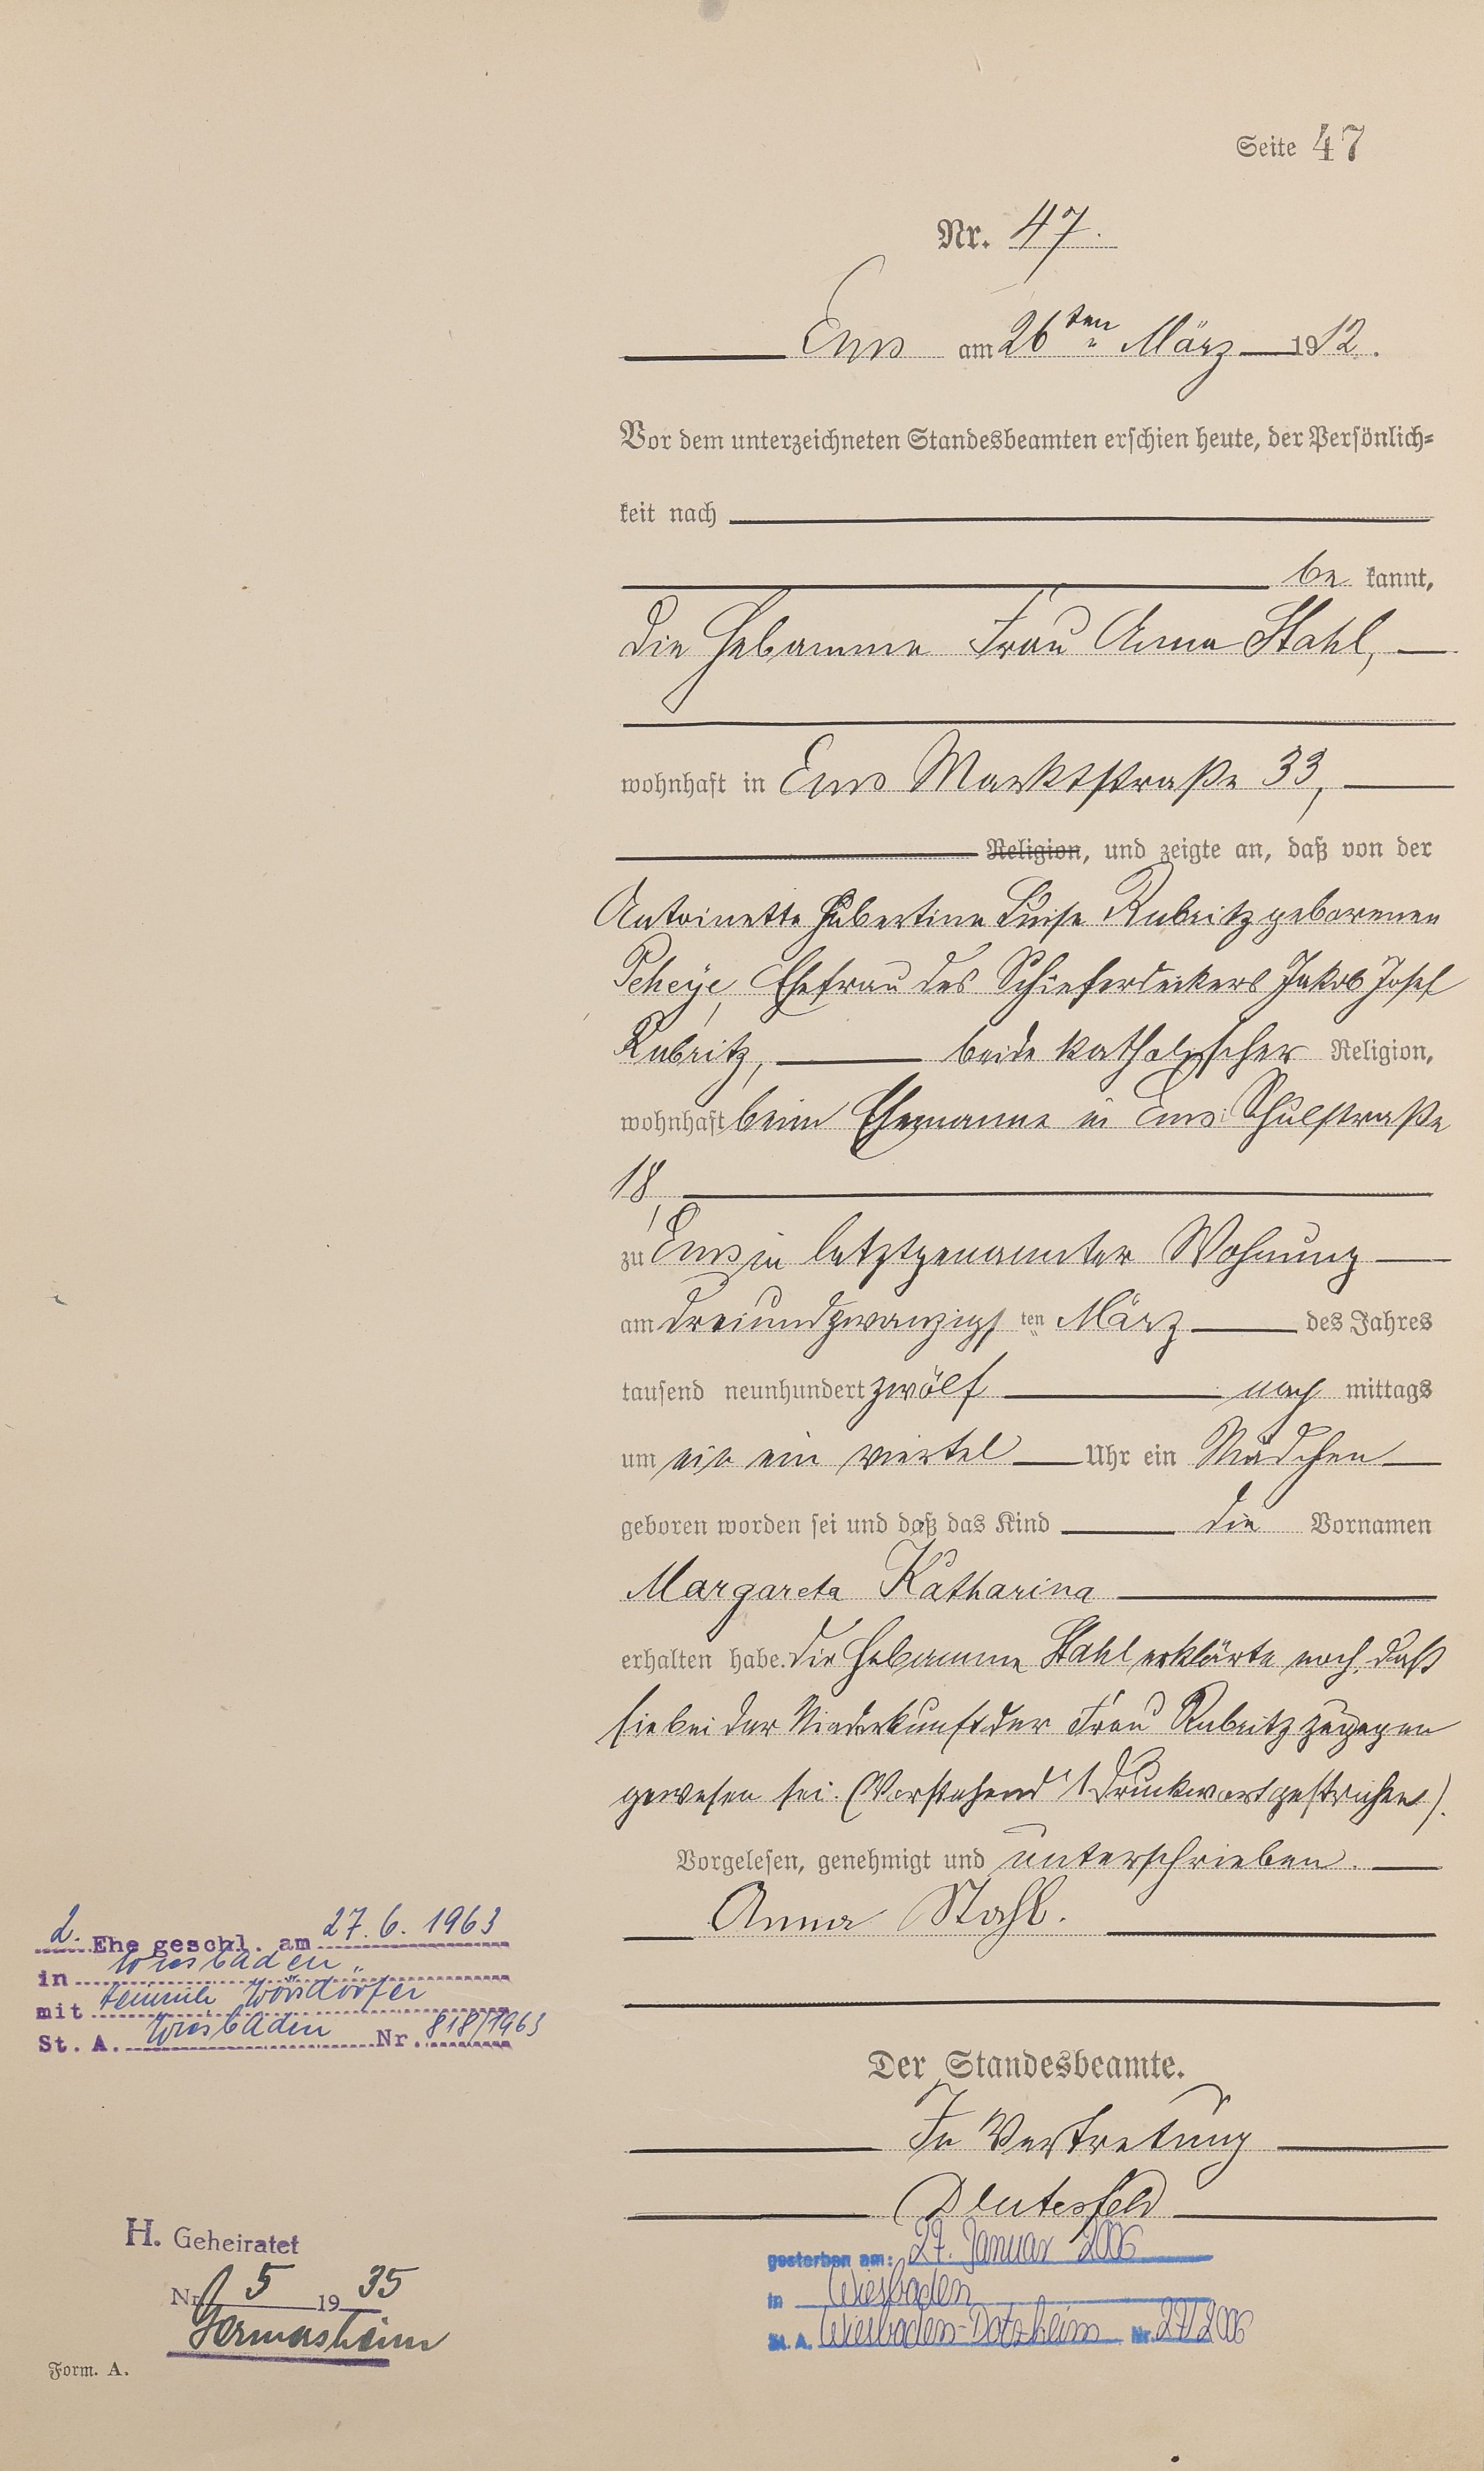 Seite 47
Nr. 47.
Ems am 26ten März 1912.
Vor dem unterzeichneten Standesbeamten erschien heute, der Persönlich=
keit nach
be kannt,
die Hebamme Frau Anna Stahl,
wohnhaft in Ems Marktstraße 33,
Religion, und zeigte an, daß von der
Antoinette Hubertine Luise Rubritz geborenen
Peheÿe, Ehefrau des Schieferdeckers Jakob Josef
Rubritz, beide katholischer Religion,
wohnhaft beim Ehemanne in Ems Schulstraße
18,
zu Ems in letztgenannter Wohnung
am dreiundzwanzigsten März des Jahres
tausend neunhundert zwölf nach mittags
um ein viertel Uhr ein Mädchen
geboren worden sei und daß das Kind die Vornamen
Margareta Katharina
erhalten habe. Die Hebamme Stahl erklärte noch, daß
sie bei der Niederkunft der Frau Rubritz zugegen
gewesen sei. (Vorstehend 1 Druckwort gestrichen).
Vorgelesen, genehmigt und unterschrieben.
Anna Stahl.
Der Standesbeamte.
In Vertretung
gestorben am: 27. Januar 2006
in Wiesbaden
St. A. Wiesbaden-Dotzheim Nr. 27/2006
2. Ehe geschl. am 27.6.1963
in Wiesbaden
mit Heinrich Wörsdörfer
St. A. Wiesbaden Nr. 818/1963
H. Geheiratet
Nr. 5 1935
Germersheim
Form. A.